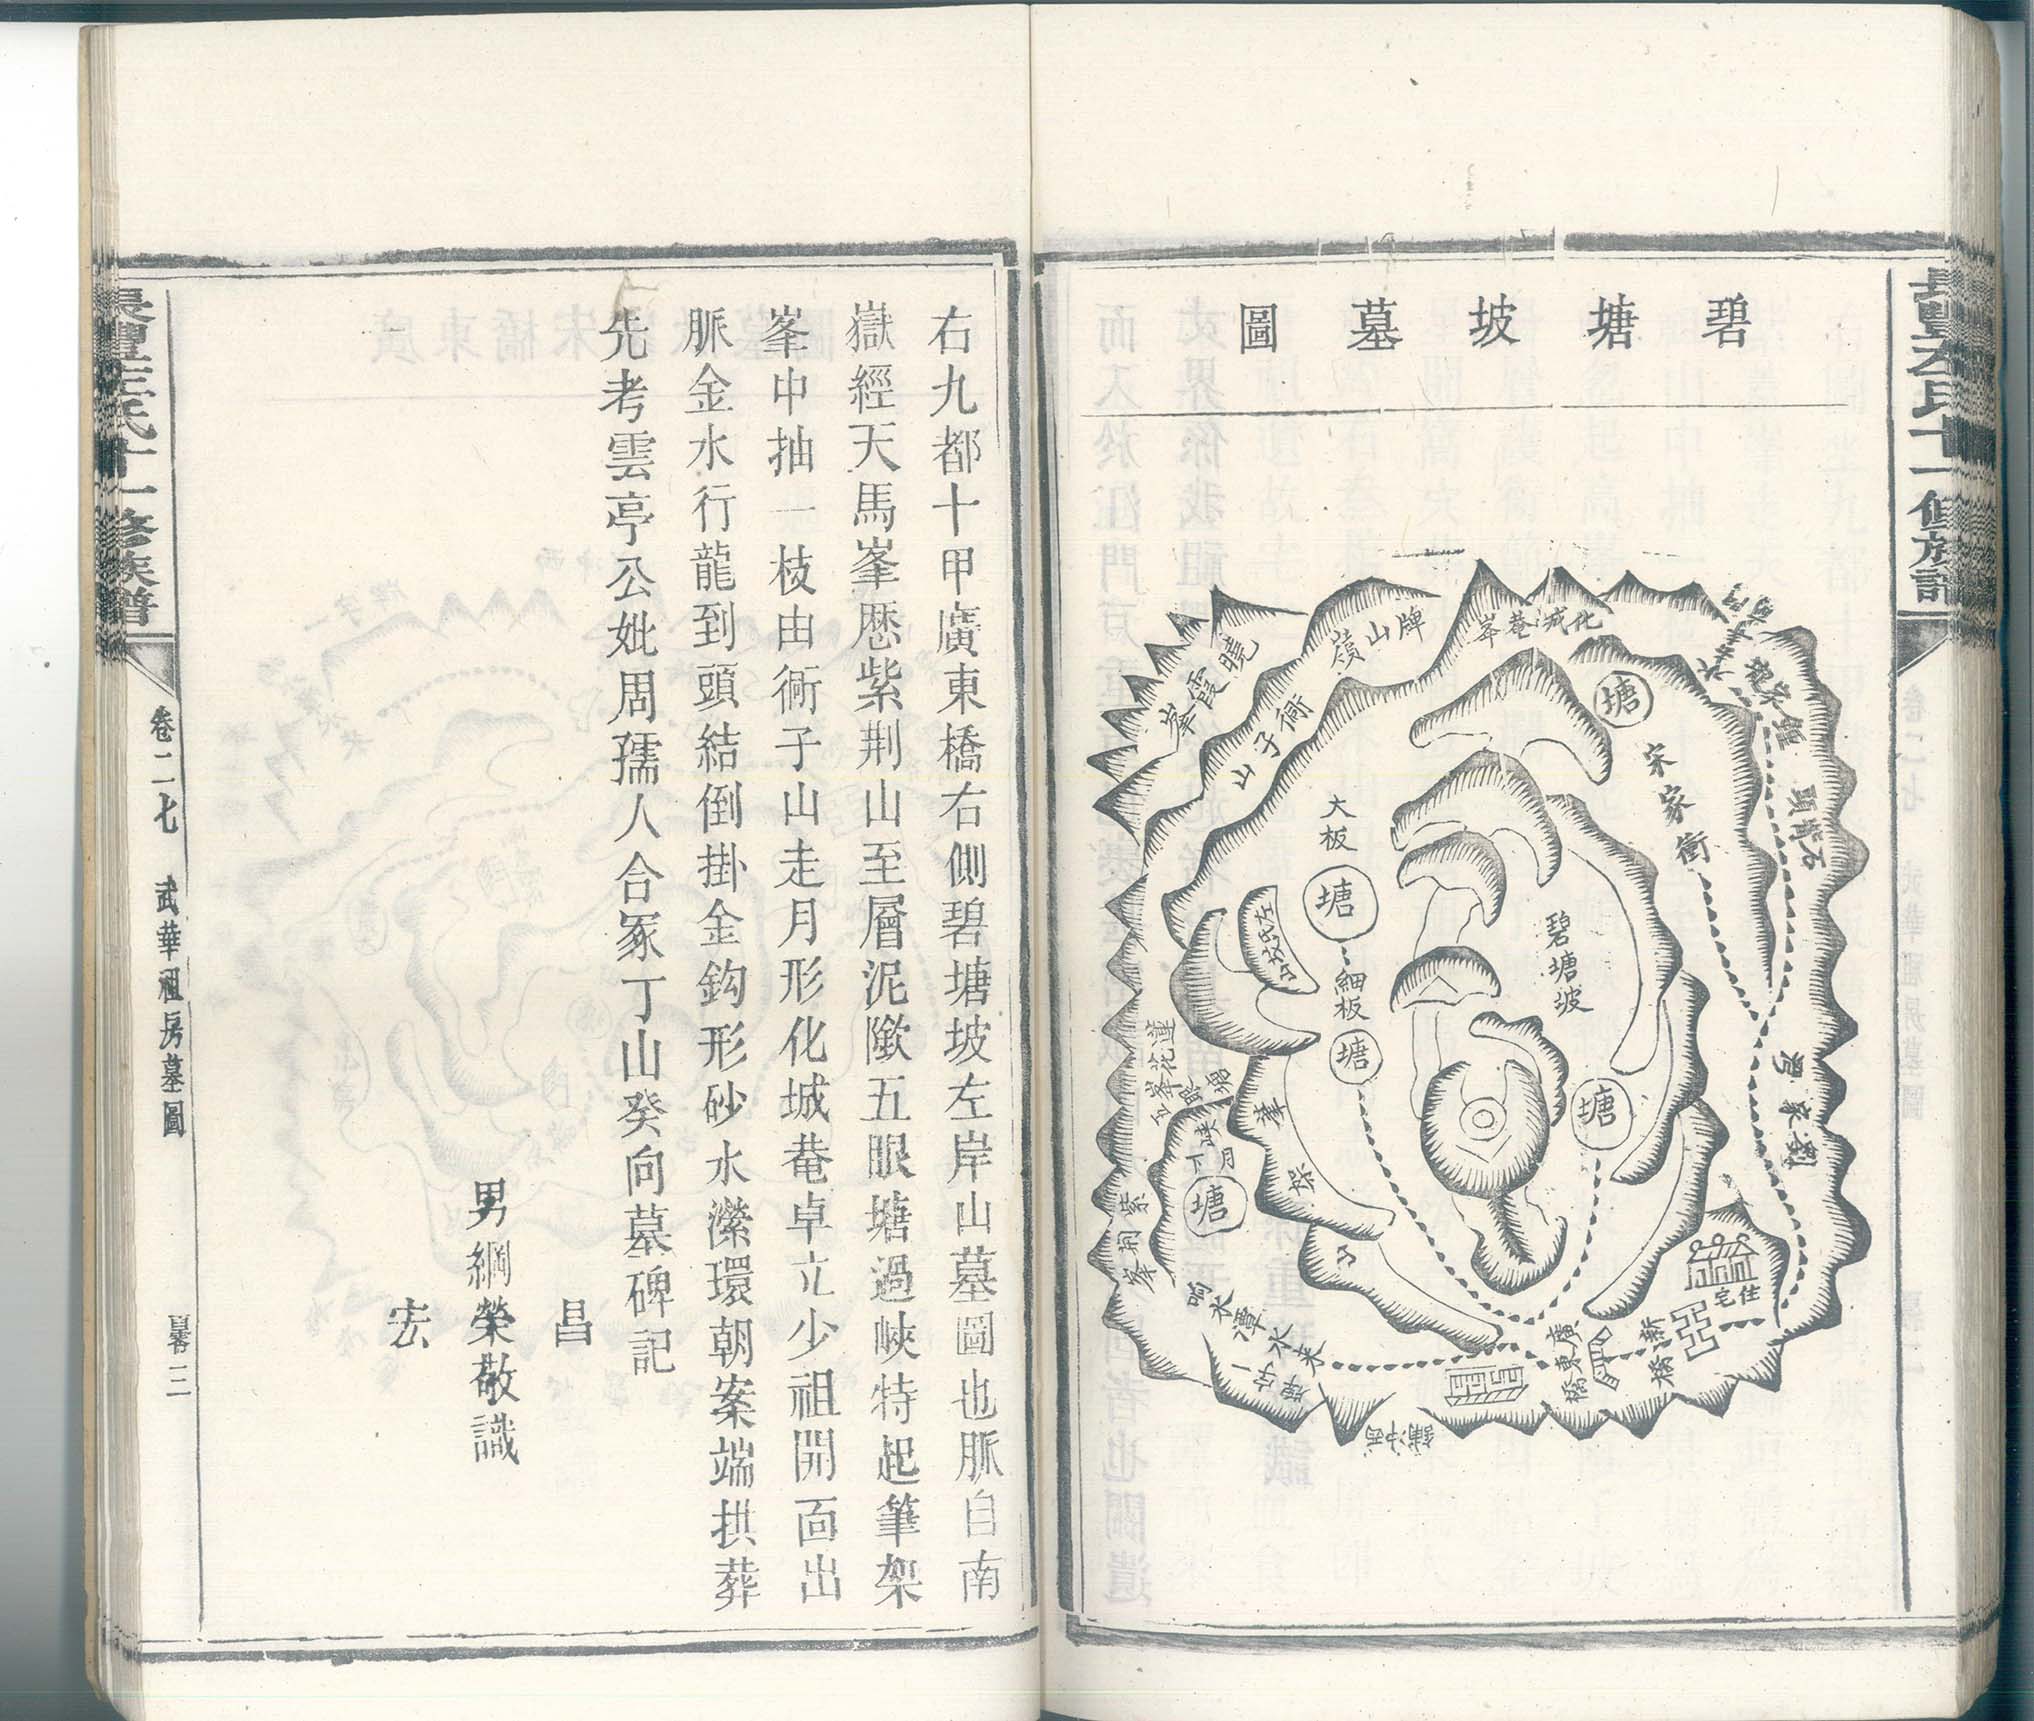 碧塘坡墓圖
曉霞峯
牌山嶺
化城菴峯
衕子山
塘
宋家衝
大板
塘
左氏坟山
碧塘坡
細板
塘
塘
蓮花峯
月
塘
紫荆峯
石背頭
劉家灣
住宅
新橋
廣東橋
西冲鋪
一字牌
來水
右九都十甲廣東橋右側碧塘坡左岸山墓圖也脈自南
嶽經天馬峯歷紫荆山至層泥隞五眼塘過峽特起筆架
峯中抽一枝由衕子山走月形化城菴卓立少祖開面出
脈金水行龍到頭結倒掛金鈎形砂水瀠環朝案端拱葬
先考雲亭公妣周孺人合冢丁山癸向墓碑記
昌
男綱榮敬識
宏
長豐左氏十一修族譜
卷二七 武華祖房墓圖